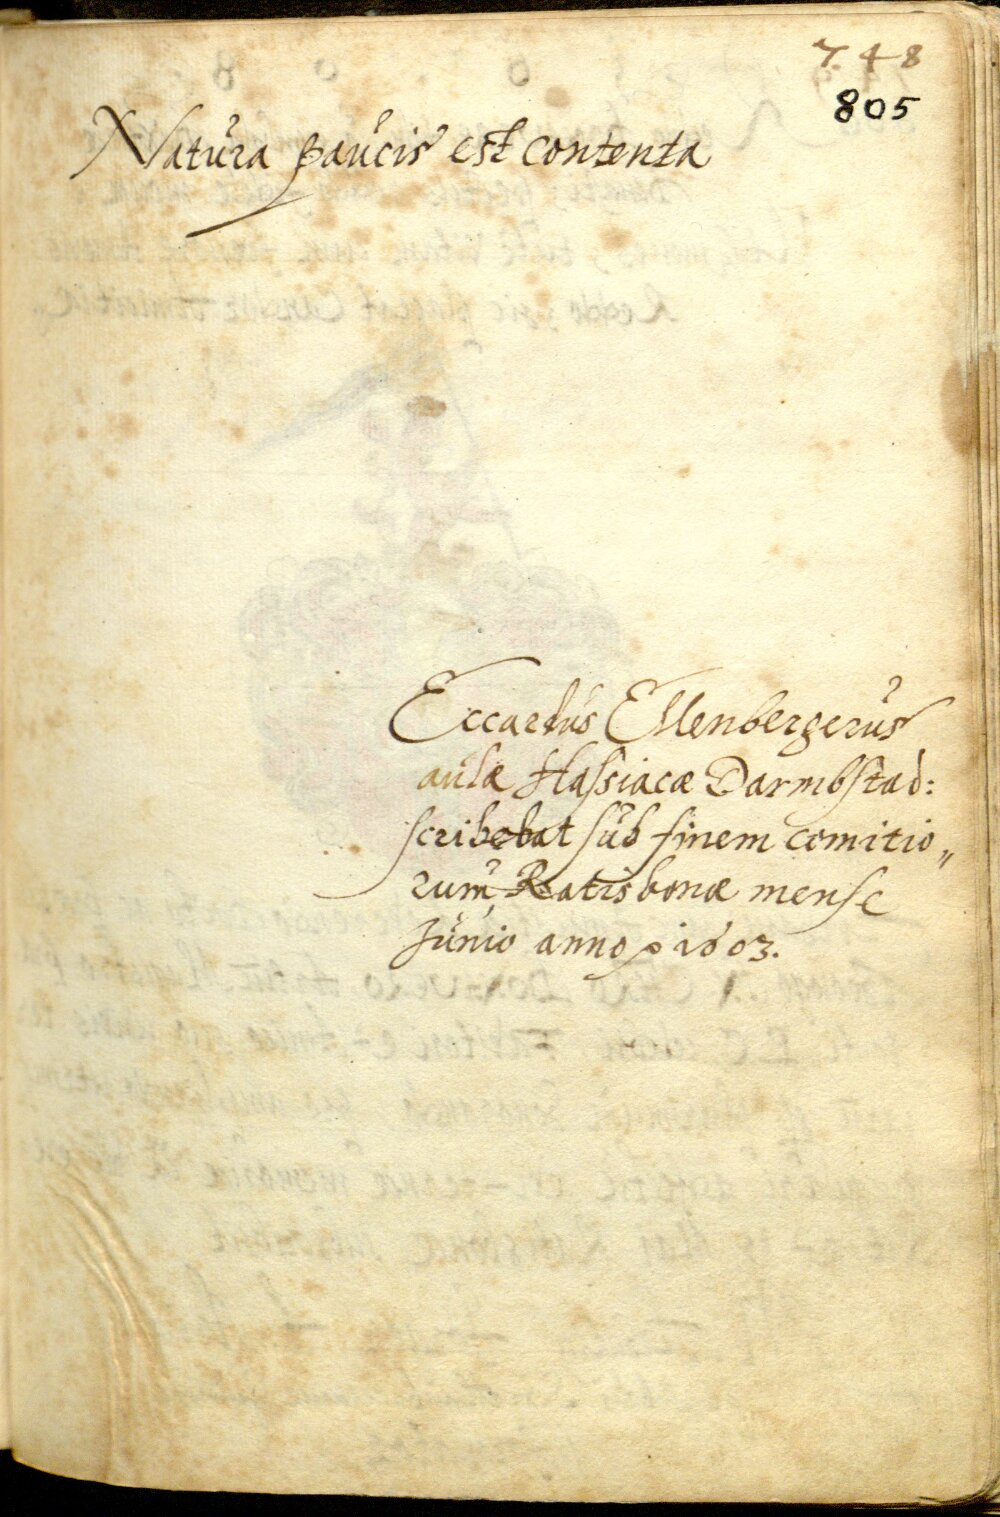 748
805
Natura paucis est contenta
Eccardus Ellenbergerus
aulæ Hassiacæ Darmbstad:
scribebat sub finem comitio„
rum Ratisbonæ mense
Junio anno 1603.